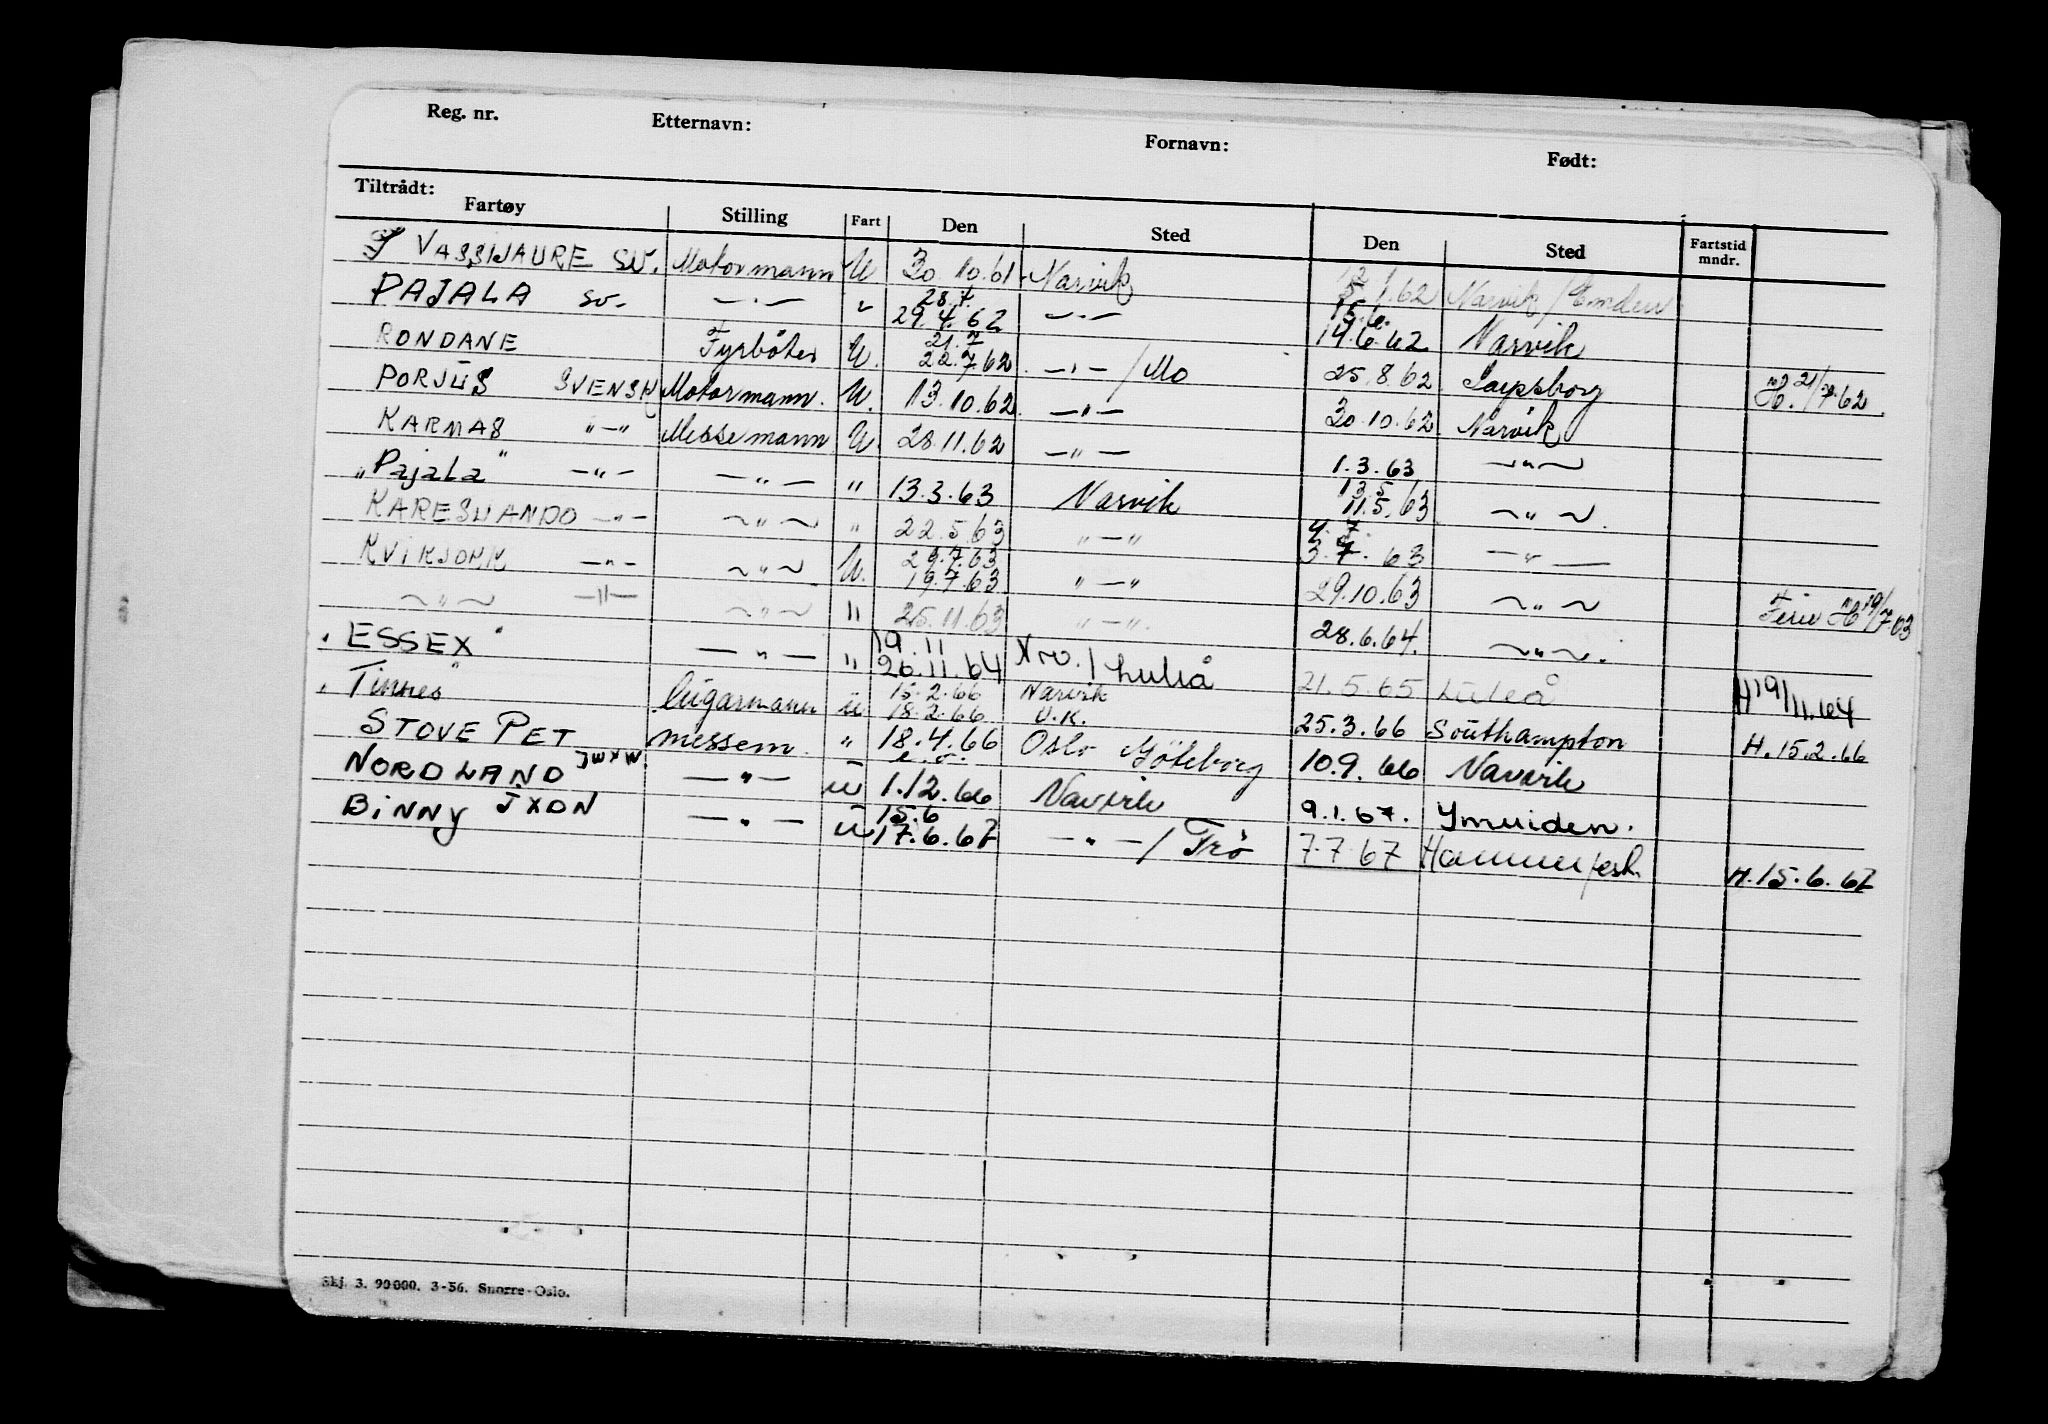 Reg. nr. Etternavn: Fornavn: Født:
Tiltrådt:
Fartøy Stilling Fart Den Sted Den Sted Fartstid mndr.
VASSIJAURE SV. Motormann U 30.10.61 Narvik 1.62 Narvik/Emden
PAJALA SV. —·— " 28.7. 29.4.62 —·— 15.6. 14.6.62 Narvik
RONDANE Fyrbøter U. 21.7 22.7.62 —·—/Mo 25.8.62 Sarpsborg H. 21/7.62
PORJUS SVENSK Motormann. U. 13.10.62 —"— 30.10.62 Narvik
KARMAS "—" Messemann U. 28.11.62 —"— 1.3.63 —"—
"Pajala" —"— —"— " 13.3.63 Narvik 13.5 11.5.63 —"—
KARESUANDO —"— —"— " 22.5.63 "—" 4.7 3.7.63 —"—
KVIKJOKK —"— —"— U. 29.7.63 19.7.63 "—" 29.10.63 —"— Ferie H 19/7.63
—"— —"— —"— " 25.11.63 "—" 28.6.64. —"—
"ESSEX" —"— " 19.11 26.11.64 Nrv./Luleå 21.5.65 Luleå H 19/11.64
"Tinnes" lugarmann u 15.2.66 18.2.66 Narvik U.K. 25.3.66 Southampton H.15.2.66
STOVE PET JWXW. messem. " 18.4.66 e.o. Oslo Göteborg 10.9.66 Narvik
NORDLAND —"— u 1.12.66 Narvik 9.1.67. Ymuiden.
BINNY JXDN —"— u 15.6 17.6.67 —"—/Trø 7.7.67 Hammerfest. H.15.6.67
Skj. 3. 90000. 3-56. Snorre-Oslo.